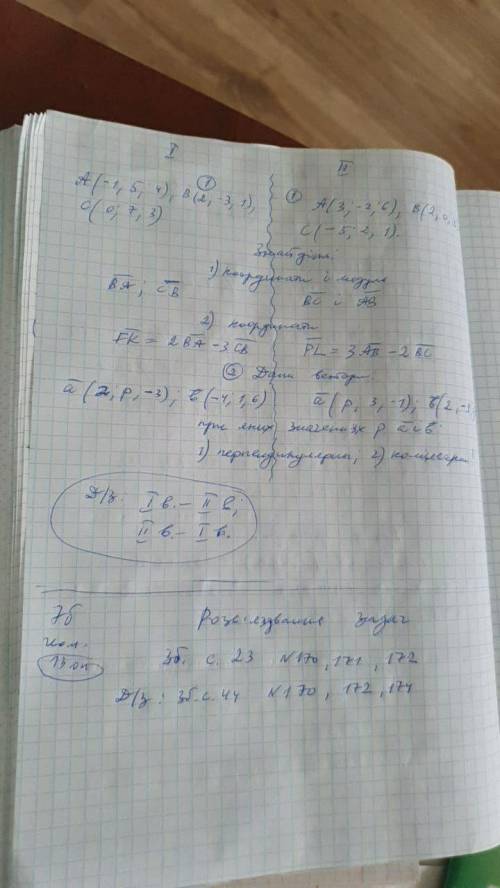 I
II
①
A(-1, 5, 4), B(2, -3, 1),
C(0; 7, 3)
① A(3; -2; 6), B(2, 0,
C(-5; 2, 1).
Знайдіть
1) координати і модуль
BA; CB
BC і AB
2) координати
FK = 2BA - 3CB
PL = 3AB - 2BC
② Дани вектор
a(2; p, -3); b(-4, 1, 6)
a(p, 3, -1); b(2, -
при яких значеннях p a і b:
1) перпендикулярні, 2) колінеарні
Д/з: I в. - II в;
II в. - I в.
7б
Розв'язування задач
Зб. с. 23 №170, 171, 172
Д/з: Зб. с. 44 №170, 172, 174